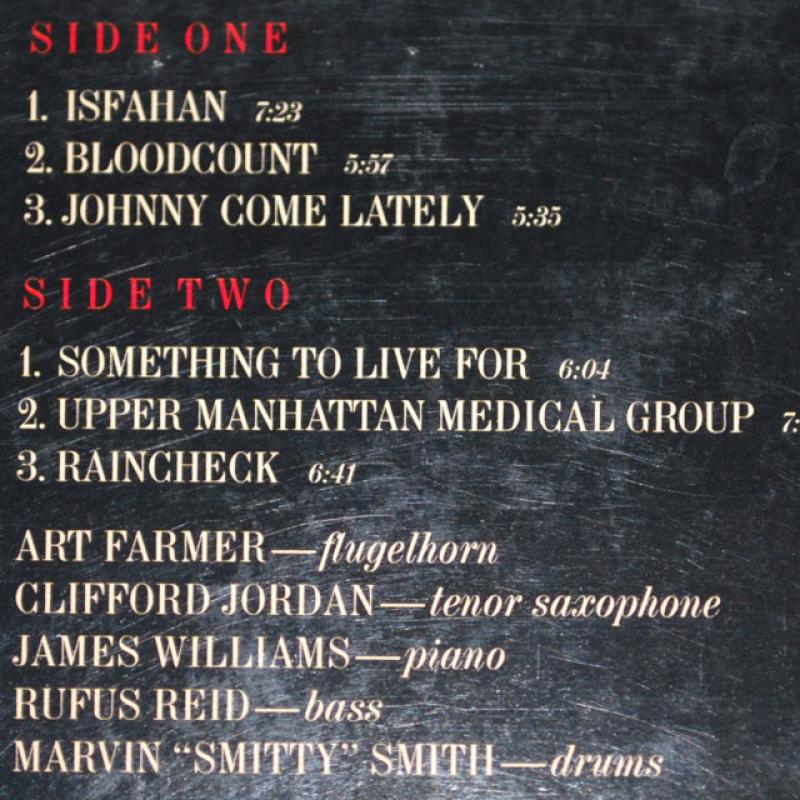 SIDE ONE
1. ISFAHAN 7:23
2. BLOODCOUNT 5:57
3. JOHNNY COME LATELY 5:35
SIDE TWO
1. SOMETHING TO LIVE FOR 6:04
2. UPPER MANHATTAN MEDICAL GROUP 7:
3. RAINCHECK 6:41
ART FARMER—flugelhorn
CLIFFORD JORDAN—tenor saxophone
JAMES WILLIAMS—piano
RUFUS REID—bass
MARVIN “SMITTY” SMITH—drums